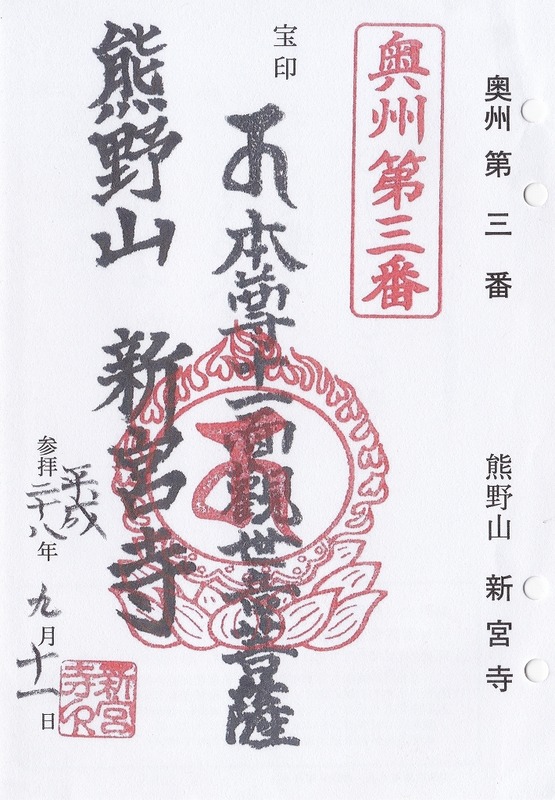 奥州第三番　熊野山　新宮寺
奥州第三番
宝印
本尊十一面観世音菩薩
熊野山　新宮寺
参拝平成二十八年九月十一日
新宮寺印